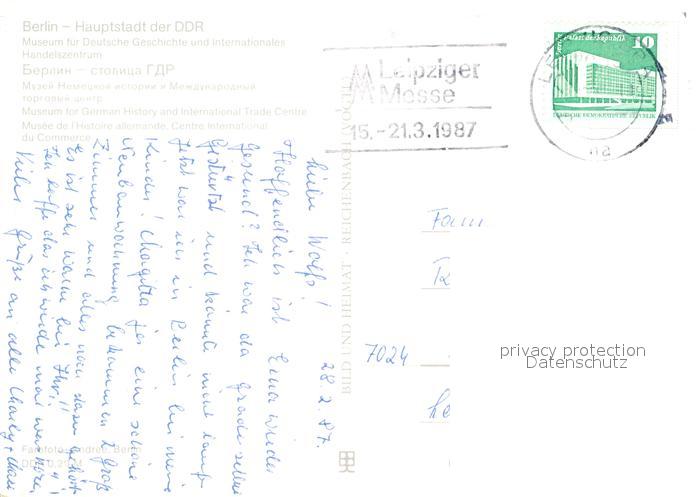 Berlin – Hauptstadt der DDR
Museum für Deutsche Geschichte und Internationales
Handelszentrum
Берлин – столица ГДР
Музей Немецкой истории и Международный
торговый центр
Museum for German History and International Trade Centre
Musée de l'Histoire allemande, Centre International
du Commerce
Leipziger
Messe
15.-21.3.1987
10
DEUTSCHE DEMOKRATISCHE REPUBLIK
BILD UND HEIMAT · REICHENBACH
28.2.87.
Liebe Wolfs!
Hoffendlich ist Erna wieder
gesund? Ich war da grade selber
gestürtzt und kannte nicht
Jetzt war ich in Berlin bei
Kinder! hat jes eine schöne
Neubauwohnung bekommen 2 große
Zimmer und alles was dazu gehört
Es ist sehr warm bei Ihr!!
Ich hoffe das ich wiede mal
Viele Grüße an alle
Fam
7024
Le
Farbfoto: Andree, Berlin
privacy protection
Datenschutz